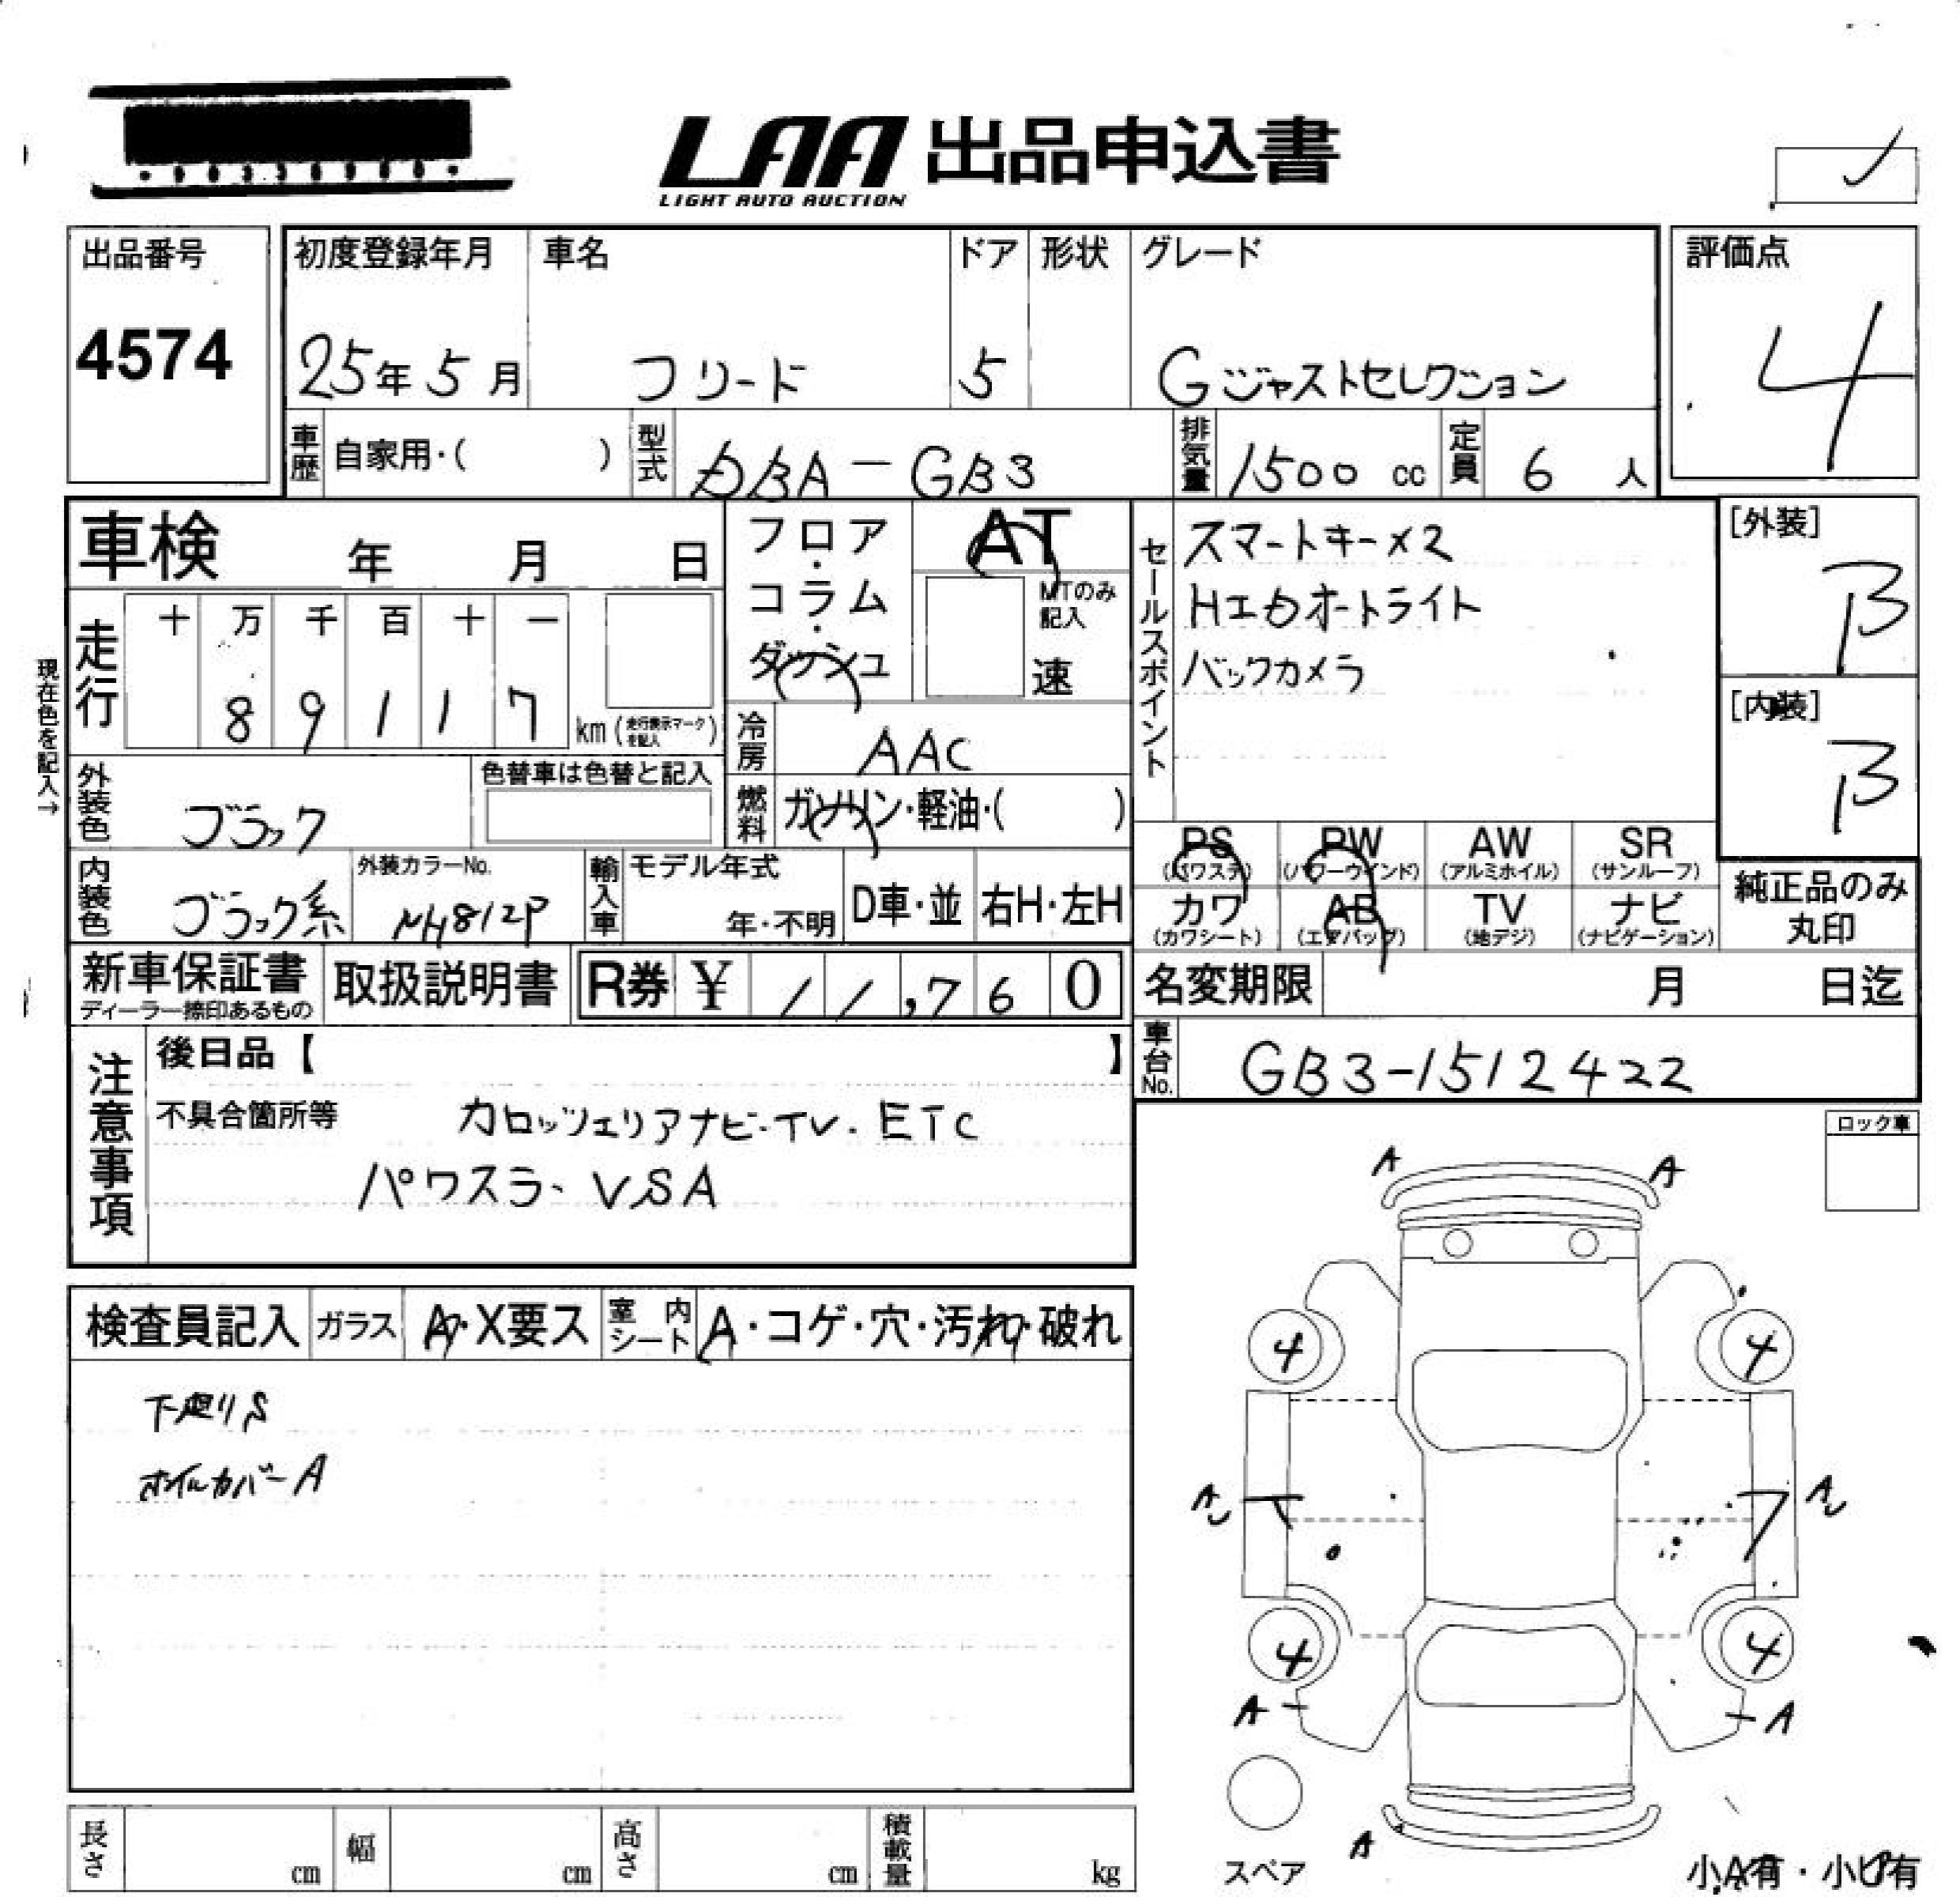 LAA 出品申込書
LIGHT AUTO AUCTION
出品番号
4574
初度登録年月
25年5月
車名
フリード
ドア
5
形状
グレード
Gジャストセレクション
評価点
4
車歴 自家用・( )
型式 DBA-GB3
排気量 1500 cc
定員 6 人
車検 年 月 日
フロア・コラム・ダッシュ
AT
MTのみ記入
速
セールスポイント
スマートキー×2
HIDオートライト
バックカメラ
[外装]
B
[内装]
B
現在色を記入→
走行
十 万 千 百 十 一
8 9 1 1 7 km (走行表示マークを記入)
冷房 AAC
外装色 ブラック
色替車は色替と記入
燃料 ガソリン・軽油・( )
PS (パワステ)
PW (パワーウインド)
AW (アルミホイル)
SR (サンルーフ)
カワ (カワシート)
AB (エアバッグ)
TV (地デジ)
ナビ (ナビゲーション)
純正品のみ丸印
内装色 ブラック系
外装カラーNo. NH812P
輸入車 モデル年式 年・不明
D車・並 右H・左H
新車保証書
ディーラー捺印あるもの
取扱説明書
R券 ¥ 11,760
名変期限 月 日迄
車台No. GB3-1512422
注意事項
後日品【 】
不具合箇所等 カロッツェリアナビ・TV・ETC
パワスラ・VSA
ロック車
検査員記入 ガラス A・X要ス 室内シート A・コゲ・穴・汚れ・破れ
下廻りS
ホイルカバーA
A A
4 4
4 4
A A
A
スペア
小A有・小U有
長さ cm 幅 cm 高さ cm 積載量 kg